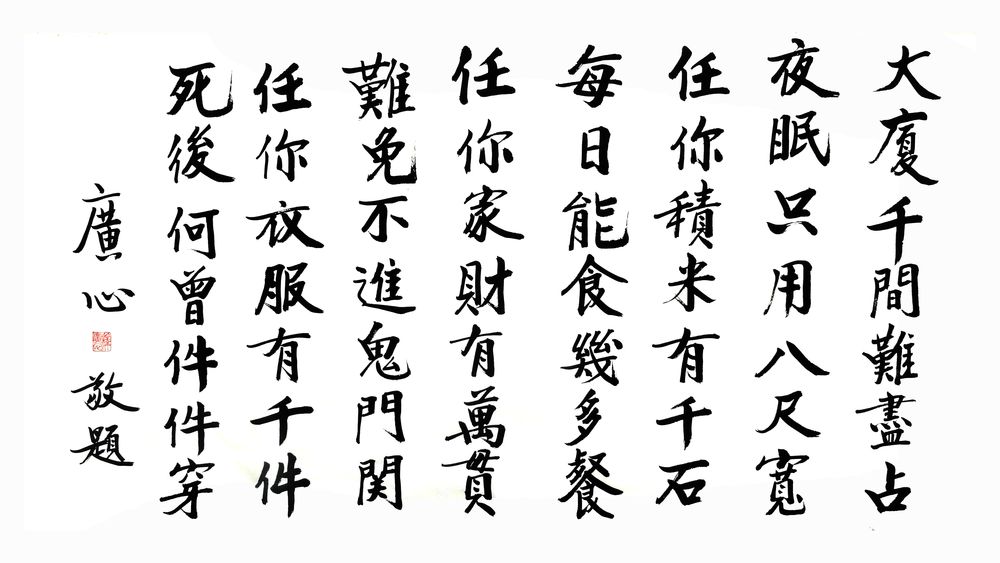 大廈千間難盡占
夜眠只用八尺寬
任你積米有千石
每日能食幾多餐
任你家財有萬貫
難免不進鬼門関
任你衣服有千件
死後何曾件件穿
廣心敬題